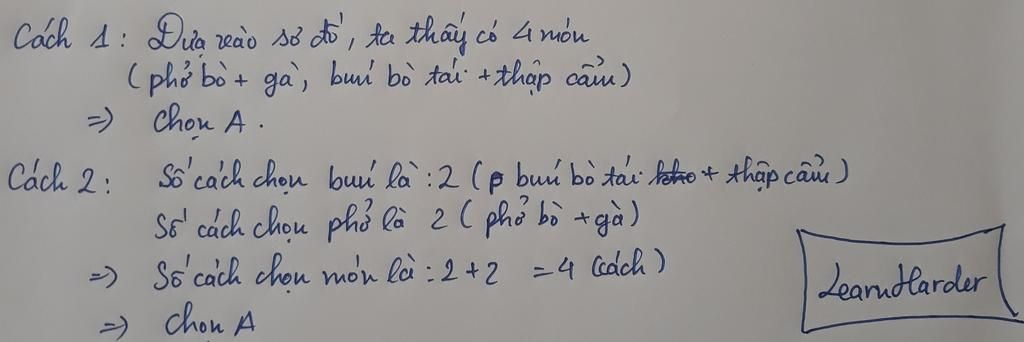 Cách 1: Dựa vào sơ đồ, ta thấy có 4 món
(phở bò + gà, bún bò tái + thập cẩm)
=> Chọn A.
Cách 2: Số cách chọn bún là: 2 (bún bò tái + thập cẩm)
Số cách chọn phở là 2 (phở bò + gà)
=> Số cách chọn món là: 2 + 2 = 4 (cách)
=> Chọn A
LearnHarder